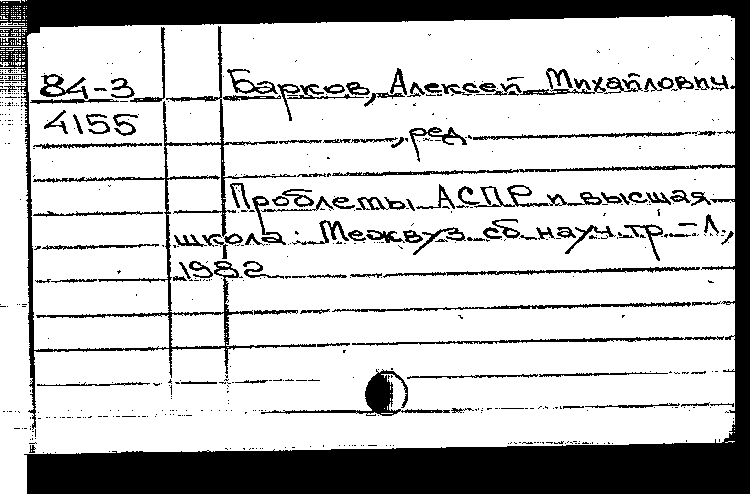 84-3 Барков, Алексей Михайлович
4155 , ред.
Проблемы АСПР и высшая
школа: Межвуз. сб. науч. тр. - Л.,
1982